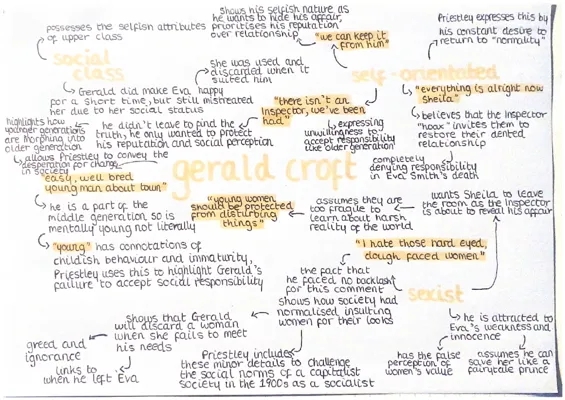 possesses the selfish attributes
of upper class
social
class
Gerald did make Eva happy
for a short time, but still mistreated
her due to her social status
she was used and
discarded when it
suited him
shows his selfish nature as
he wants to hide his affair,
prioritises his reputation
over relationship
"we can keep it
from him"
Priestley expresses this by
his constant desire to
return to "normality"
self-orientated
"everything is alright now
Sheila"
believes that the Inspector
"hoax" invites them to
restore their dented
relationship
"there isn't an
Inspector, we've been
had"
expressing
unwillingness to
accept responsibility
like older generation
completely
denying responsibility
in Eva Smith's death
he didn't leave to find the
truth, he only wanted to protect
his reputation and social perception
highlights how
younger generations
are morphing into
older generation
allows Priestley to convey the
desperation for change
in society
gerald croft
"easy, well bred
young man about town"
he is a part of the
middle generation so is
mentally young not literally
"young" has connotations of
childish behaviour and immaturity,
Priestley uses this to highlight Gerald's
failure to accept social responsibility
"young women
should be protected
from disturbing
things"
assumes they are
too fragile to
learn about harsh
reality of the world
wants Sheila to leave
the room as the Inspector
is about to reveal his affair
"I hate those hard eyed,
dough faced women"
the fact that
he faced no backlash
for this comment
shows how society had
normalised insulting
women for their looks
sexist
he is attracted to
Eva's weakness and
innocence
has the false
perception of
women's value
assumes he can
save her like a
fairytale prince
shows that Gerald
will discard a woman
when she fails to meet
his needs
greed and
ignorance
links to
when he left Eva
Priestley includes
these minor details to challenge
the social norms of a capitalist
society in the 1900s as a socialist